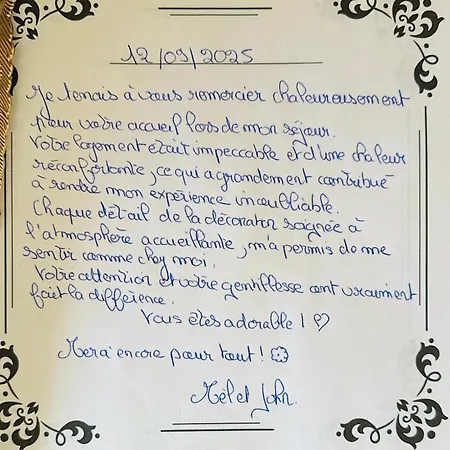 12/09/2025
Je tenais à vous remercier chaleureusement
pour votre accueil lors de mon séjour.
Votre logement était impeccable et d'une chaleur
réconfortante, ce qui a grandement contribué
à rendre mon expérience inoubliable.
Chaque détail de la décoration soignée à
l'atmosphère accueillante, m'a permis de me
sentir comme chez moi.
Votre attention et votre gentillesse ont vraiment
fait la différence.
Vous êtes adorable ! ♡
Merci encore pour tout ! ☺
Mél et John.